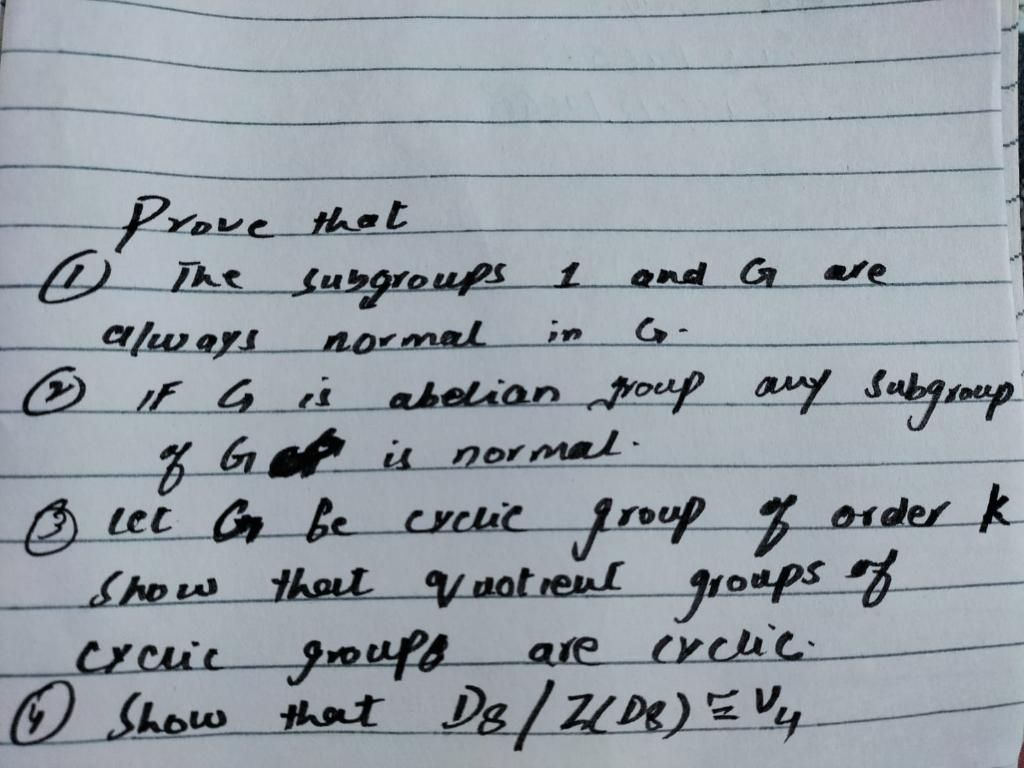 Prove that
① The subgroups 1 and G are
always normal in G.
② If G is abelian group any subgroup
of G is normal.
③ Let G be cyclic group of order k
Show that quotient groups of
cyclic groups are cyclic.
④ Show that D8 / Z(D8) ≅ V4